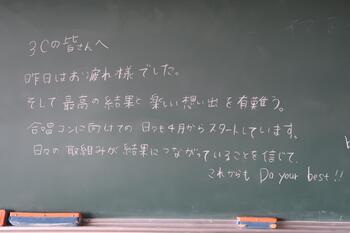 3Cの皆さんへ
昨日はお疲れ様でした。
そして最高の結果と楽しい想い出を有難う。
合唱コンに向けての日々も4月からスタートしています。
日々の取組みが結果につながっていることを信じて、
これからも Do your best!!